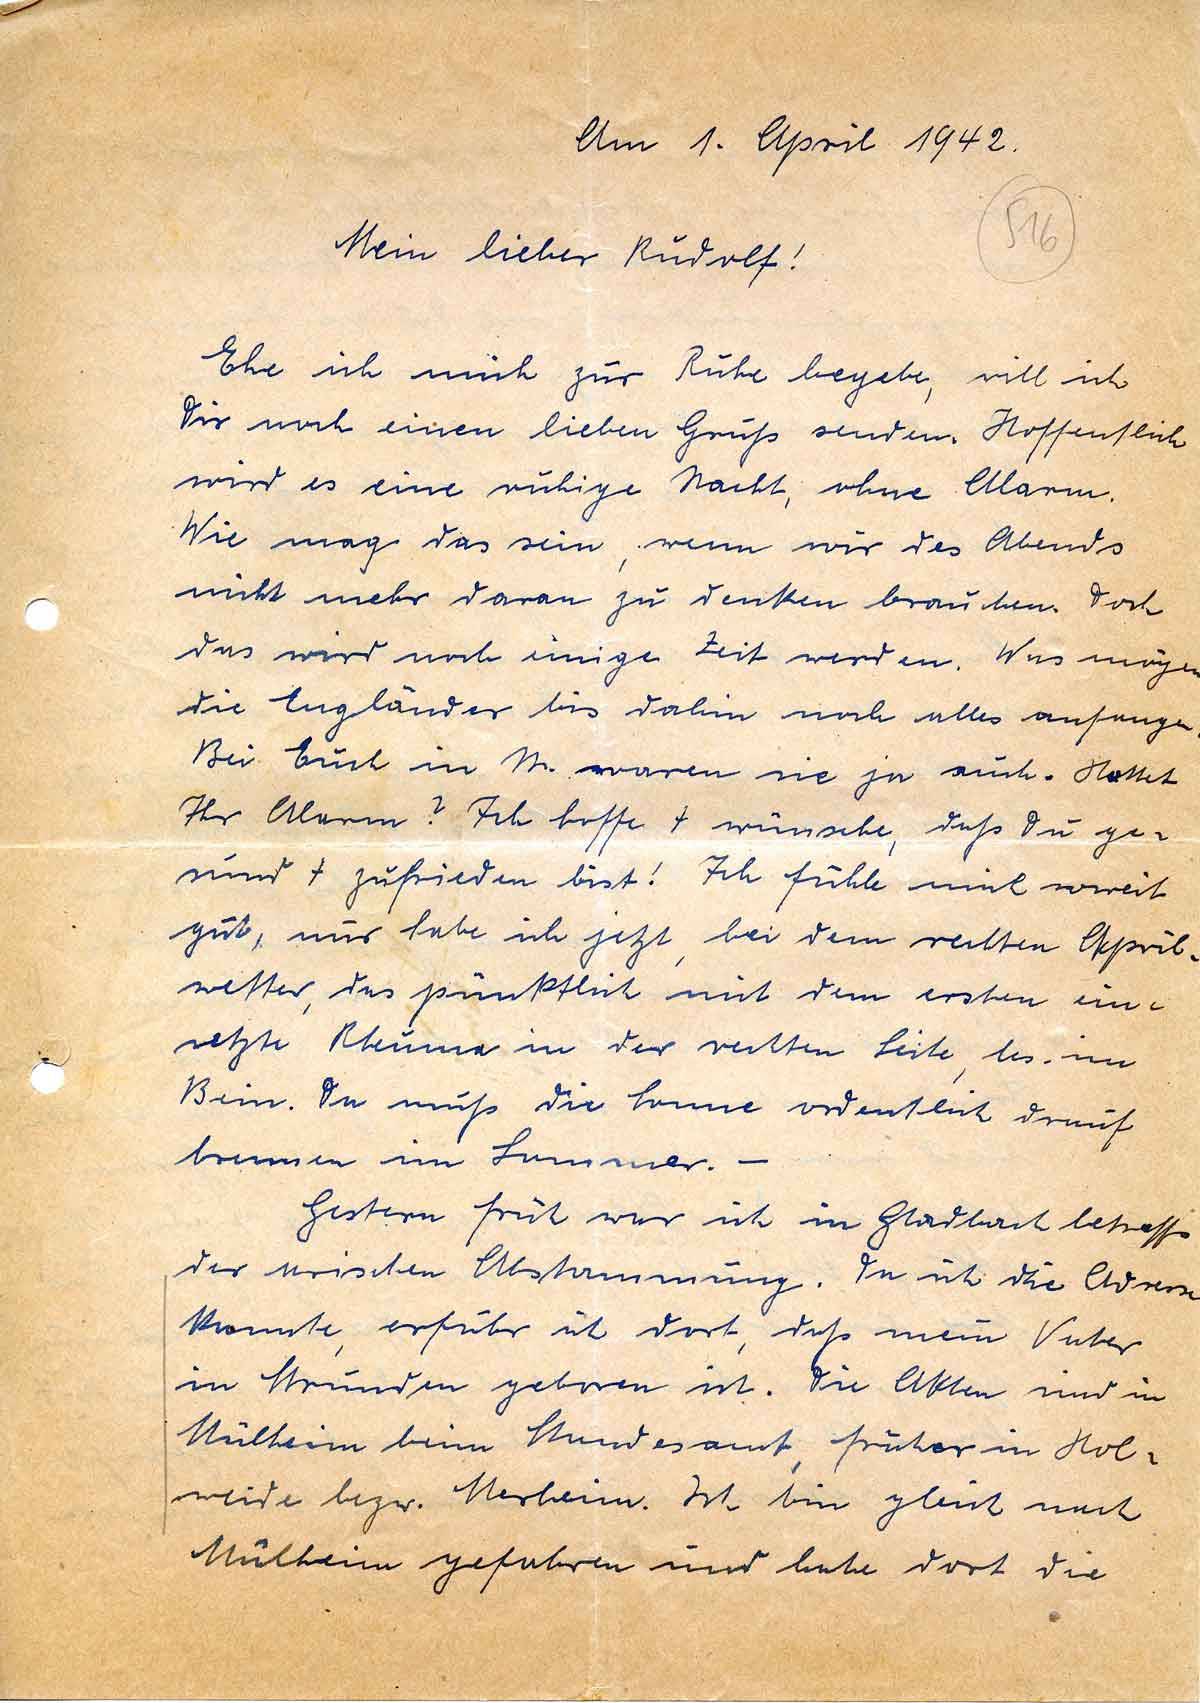 Am 1. April 1942.
516
Mein lieber Rudolf!
Ehe ich mich zur Ruhe begebe, will ich
Dir noch einen lieben Gruß senden. Hoffentlich
wird es eine ruhige Nacht, ohne Alarm.
Wie mag das sein, wenn wir des Abends
nicht mehr daran zu denken brauchen. Doch
das wird noch einige Zeit werden. Was mögen
die Engländer bis dahin noch alles anfangen.
Bei Euch in M. waren sie ja auch. Hattet
Ihr Alarm? Ich hoffe + wünsche, daß Du ge-
sund + zufrieden bist! Ich fühle mich soweit
gut, nur habe ich jetzt, bei dem rechten April-
wetter, das pünktlich mit dem ersten ein-
setzte Rheuma in der rechten Seite, bes. im
Bein. Da muß die Sonne ordentlich drauf
brennen im Sommer. —
Gestern früh war ich in Gladbach betreffs
der arischen Abstammung. Da ich die Adresse
kannte, erfuhr ich dort, daß mein Vater
in Strunden geboren ist. Die Akten sind in
Mülheim beim Standesamt, früher in Hol-
weide bezw. Merheim. Ich bin gleich nach
Mülheim gefahren und habe dort die